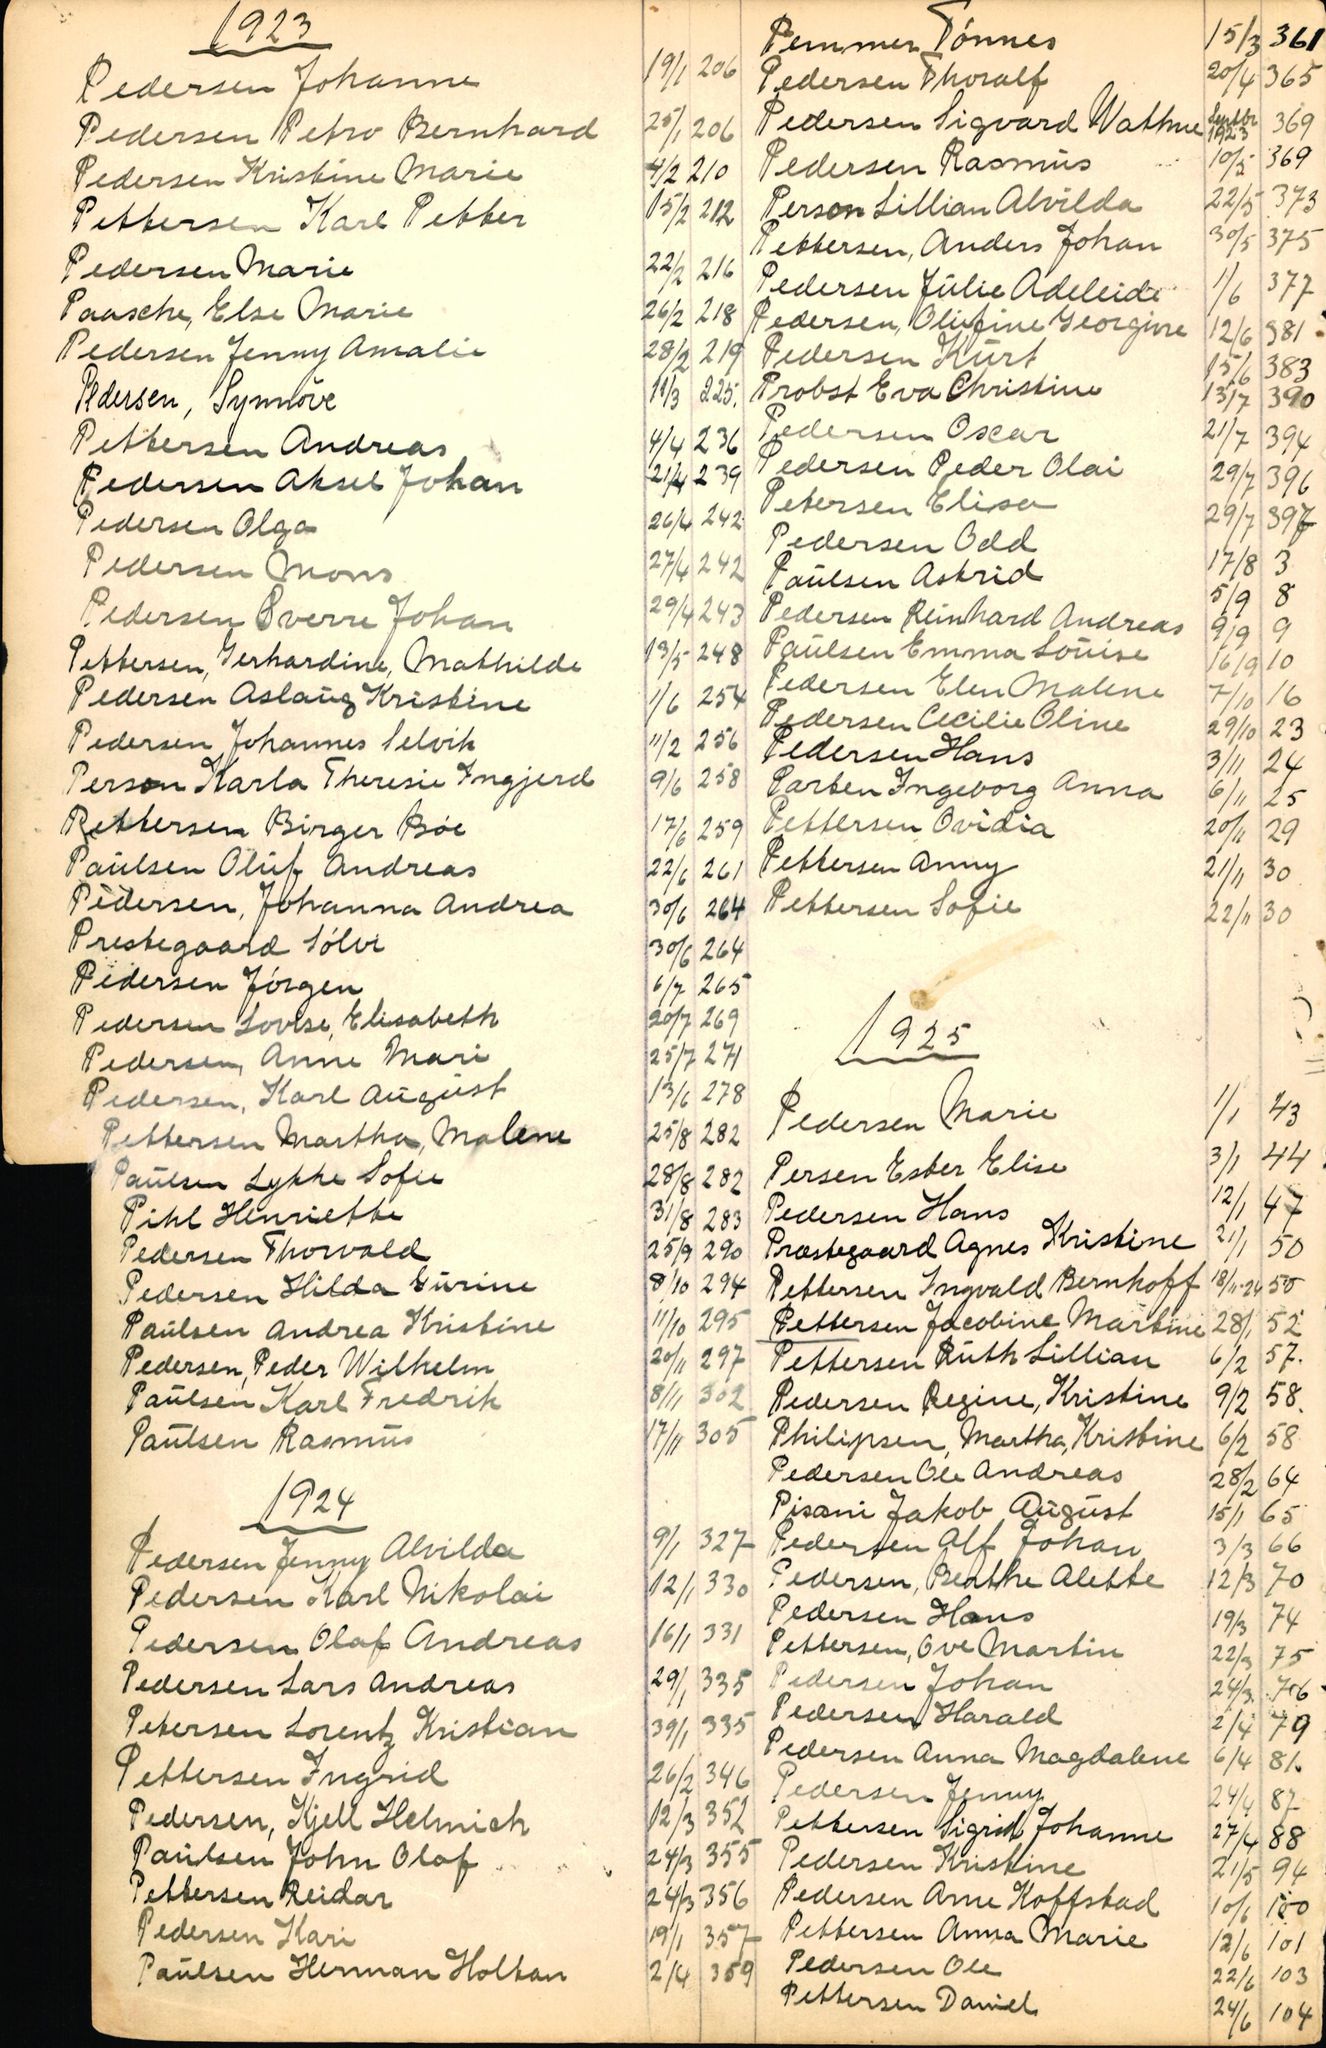 1923
Pedersen Johanne 19/1 206
Pedersen Petro Bernhard 25/1 206
Pedersen Kristine Marie 4/2 210
Pettersen Karl Petter 15/2 212
Pedersen Marie 22/2 216
Paasche, Else Marie 26/2 218
Pedersen Jenny Amalie 28/2 219
Pedersen, Synnöve 11/3 225.
Pettersen Andreas 4/4 236
Pedersen Aksel Johan 21/4 239
Pedersen Olga 26/4 242
Pedersen Mons 27/4 242
Pedersen Sverre Johan 29/4 243
Pettersen, Gerhardine, Mathilde 13/5 248
Pedersen Aslaug Kristine 1/6 254
Pedersen Johannes Selvik 11/2 256
Person Karla Theresie Ingjerd 9/6 258
Pettersen Birger Bóe 17/6 259
Paulsen Oluf Andreas 22/6 261
Pedersen, Johanna Andrea 30/6 264
Prestegaard Sólvi 30/6 264
Pedersen Jörgen 6/7 265
Pedersen Lovise, Elisabeth 20/7 269
Pedersen, Anne Mari 25/7 271
Pedersen, Karl August 13/6 278
Pettersen Martha, Malene 25/8 282
Paulsen Lykke Sofie 28/8 282
Pihl Henriette 31/8 283
Pedersen Thorvald 25/9 290
Pedersen Hilda Gurine 8/10 294
Paulsen Andrea Kristine 11/10 295
Pedersen, Peder Wilhelm 20/11 297
Paulsen Karl Fredrik 8/11 302
Paulsen Rasmus 17/11 305
1924
Pedersen Jenny Alvilda 9/1 327
Pedersen Karl Nikolai 12/1 330
Pedersen Olaf Andreas 16/1 331
Pedersen Lars Andreas 29/1 335
Petersen Lorentz Kristian 39/1 335
Pettersen Ingrid 26/2 346
Pedersen, Kjell Helmich 12/3 352
Paulsen John Olaf 24/3 355
Pettersen Reidar 24/3 356
Pedersen Kari 19/1 357
Paulsen Herman Holtan 2/4 359
Pemmer Tónnes 15/3 361
Pedersen Thoralf 20/4 365
Pedersen Sigvard Wathne 1923 369
Pedersen Rasmus 10/5 369
Person Lillian Alvilda 22/5 373
Pettersen, Anders Johan 30/5 375
Pedersen Julie Adeleide 1/6 377
Pedersen, Olufine Georgine 12/6 381
Pedersen Kurt 15/6 383
Probst Eva Christine 13/7 390
Pedersen Oscar 21/7 394
Pedersen Peder Olai 29/7 396
Petersen Elisa 29/7 397
Pedersen Odd 17/8 3
Paulsen Astrid 5/9 8
Pedersen Reinhard Andreas 9/9 9
Paulsen Emma Louise 16/9 10
Pedersen Elen Malene 7/10 16
Pedersen Cecilie Oline 29/10 23
Pedersen Hans 3/11 24
Parben Ingeborg Anna 6/11 25
Pettersen Ovidia 20/11 29
Pettersen Anny 21/11 30
Pettersen Sofie 22/11 30
1925
Pedersen Marie 1/1 43
Persen Ester Elise 3/1 44
Pedersen Hans 12/1 47
Præstegaard Agnes Kristine 21/1 50
Pettersen Ingvald Bernhoff 18/11-24 50
Pettersen Jacobine Martine 28/1 52
Pettersen Ruth Lillian 6/2 57.
Pedersen Regine, Kristine 9/2 58.
Philipsen, Martha, Kristine 6/2 58
Pedersen Ole Andreas 28/2 64
Pisani Jakob August 15/1 65
Pedersen Alf Johan 3/3 66
Pedersen, Berthe Alette 12/3 70
Pedersen Hans 19/3 74
Pettersen, Ove Martin 22/3 75
Pedersen Johan 24/3 76
Pedersen, Harald 2/4 79
Pedersen Anna Magdalene 6/4 81.
Pedersen Jenny 24/4 87
Pettersen Sigrid Johanne 27/4 88
Pedersen Kristine 21/5 94
Pedersen Arne Koffstad 10/6 100
Pettersen Anna Marie 12/6 101
Pedersen Ole 22/6 103
Pettersen Daniel 24/6 104